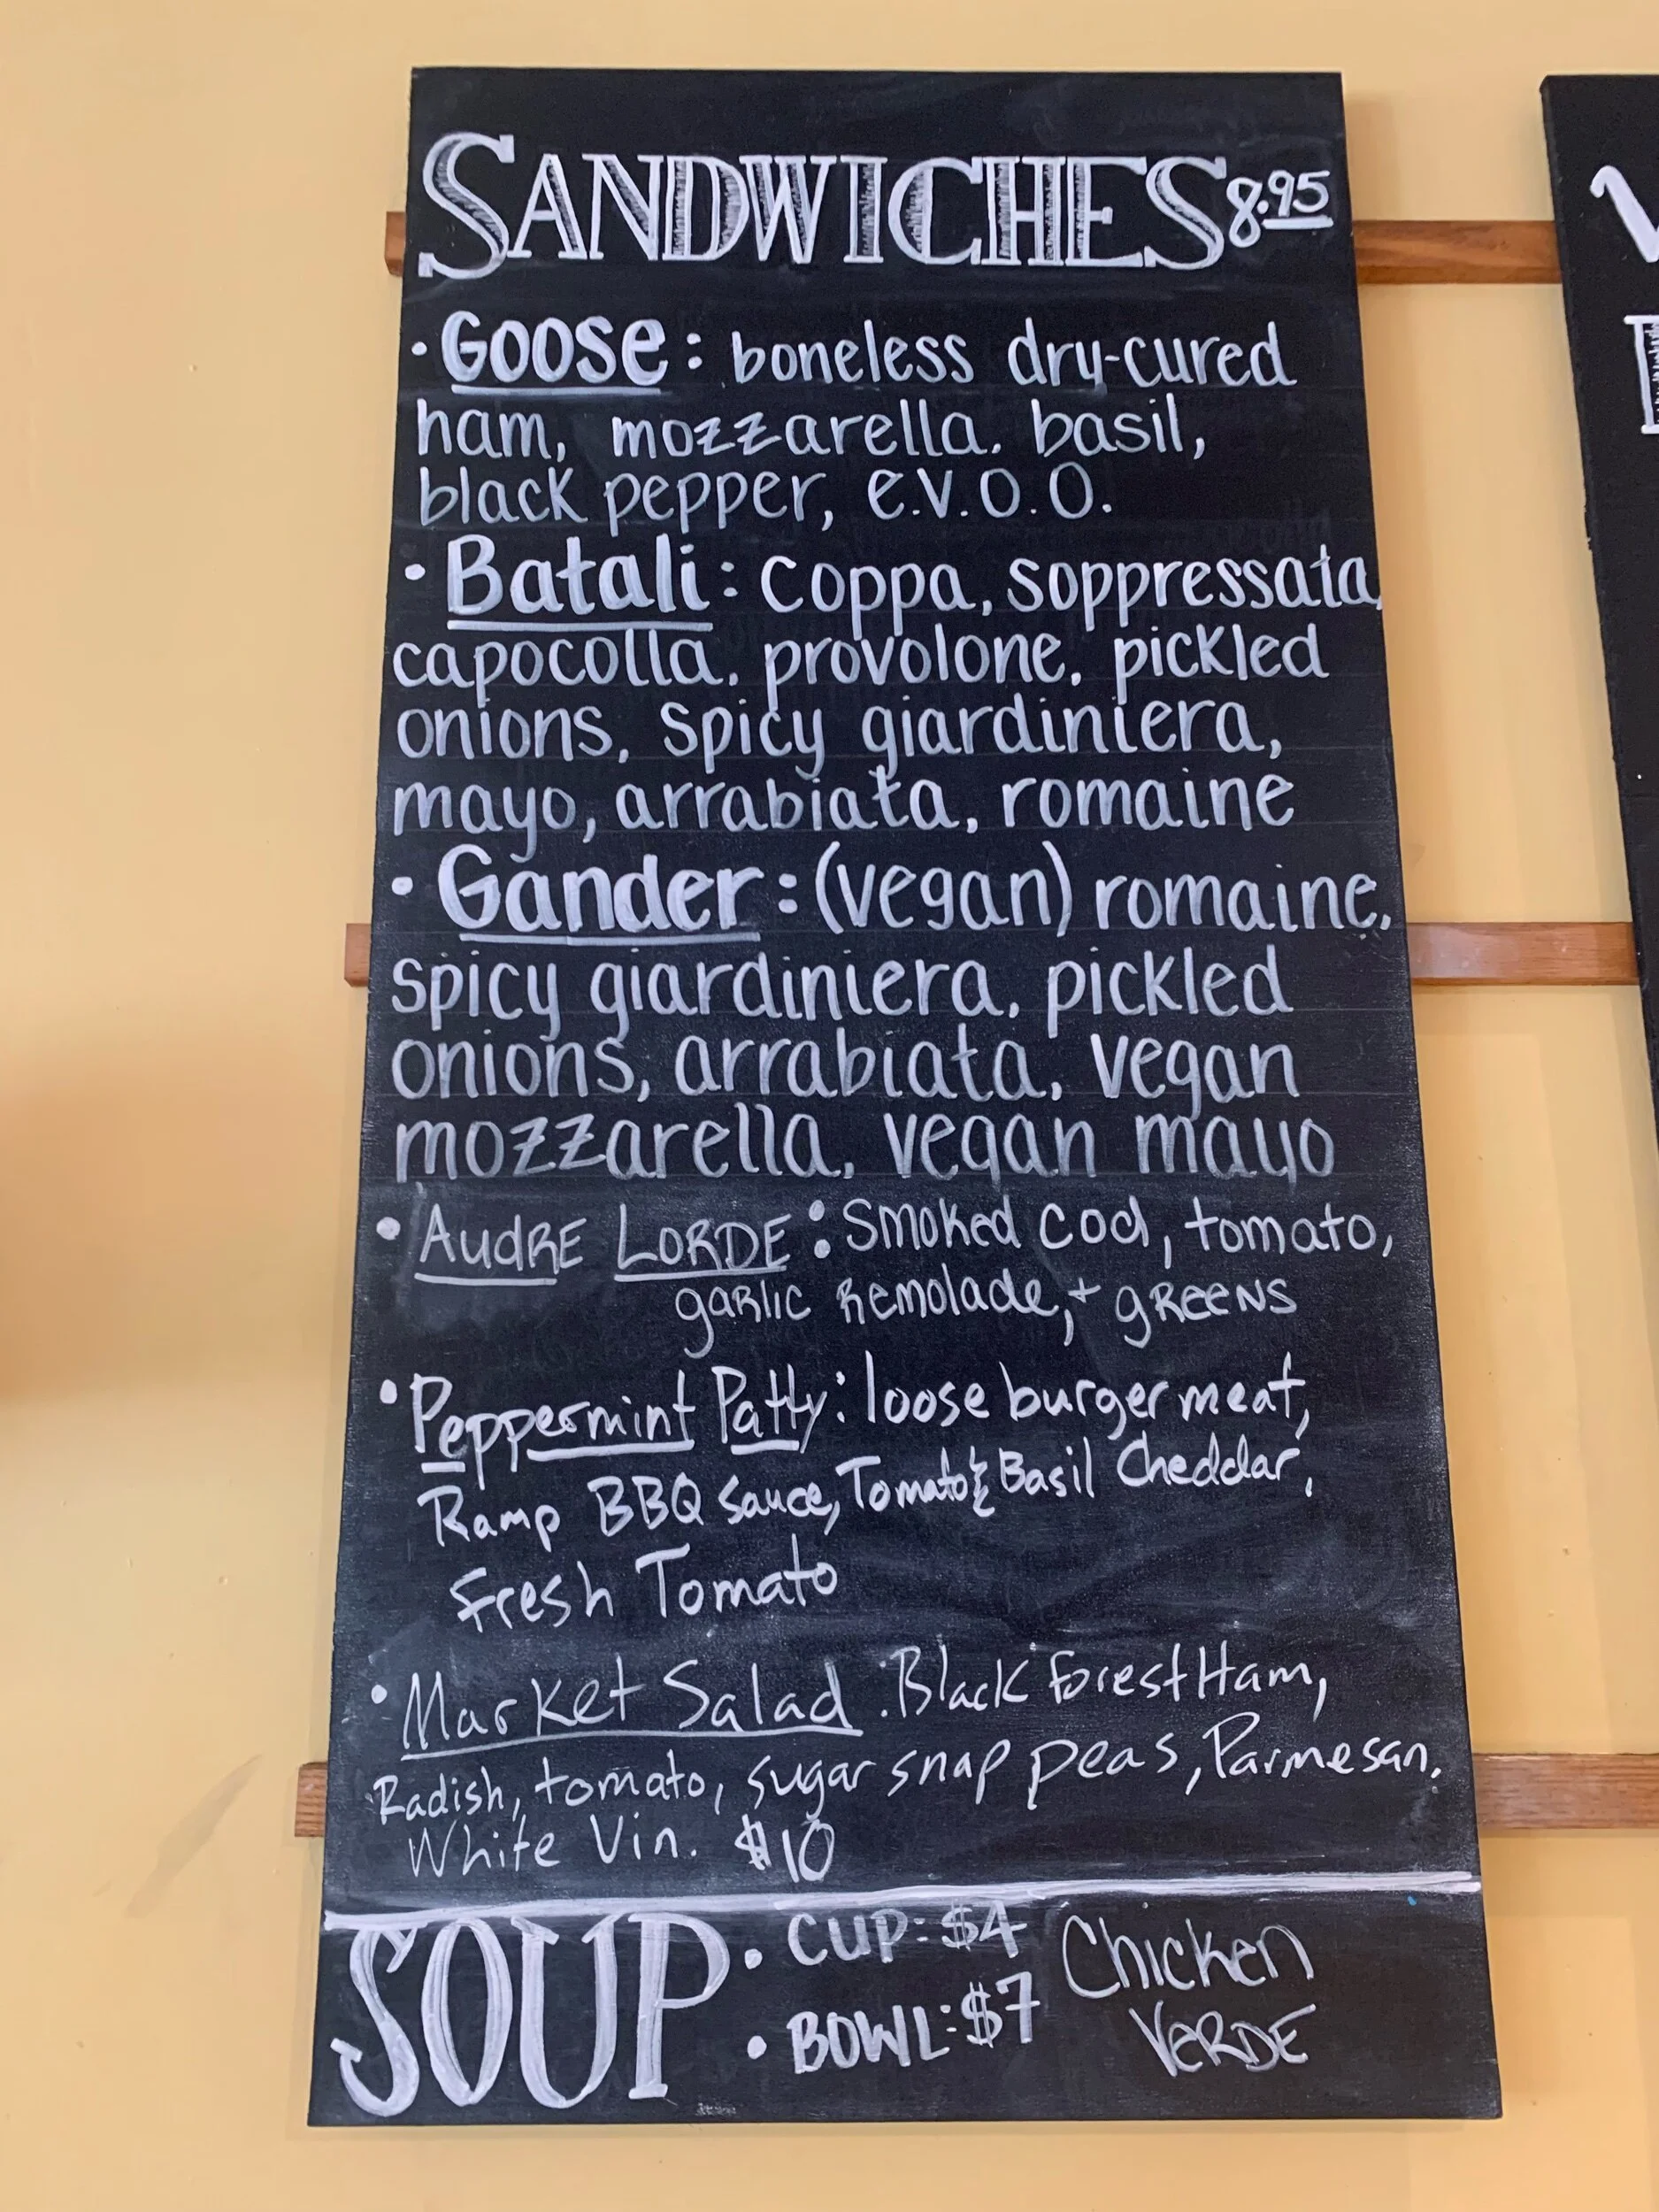 SANDWICHES 8.95
• Goose: boneless dry-cured
ham, mozzarella, basil,
black pepper, e.v.o.o.
• Batali: coppa, soppressata,
capocolla, provolone, pickled
onions, spicy giardiniera,
mayo, arrabiata, romaine
• Gander: (vegan) romaine,
spicy giardiniera, pickled
onions, arrabiata, vegan
mozzarella, vegan mayo
• AUDRE LORDE: Smoked cod, tomato,
garlic Remolade, + greens
• Peppermint Patty: loose burger meat,
Ramp BBQ sauce, Tomato & Basil Cheddar,
Fresh Tomato
• Market Salad: Black Forest Ham,
Radish, tomato, sugar snap peas, Parmesan,
White Vin. $10
SOUP • CUP: $4 Chicken
• BOWL: $7 VERDE